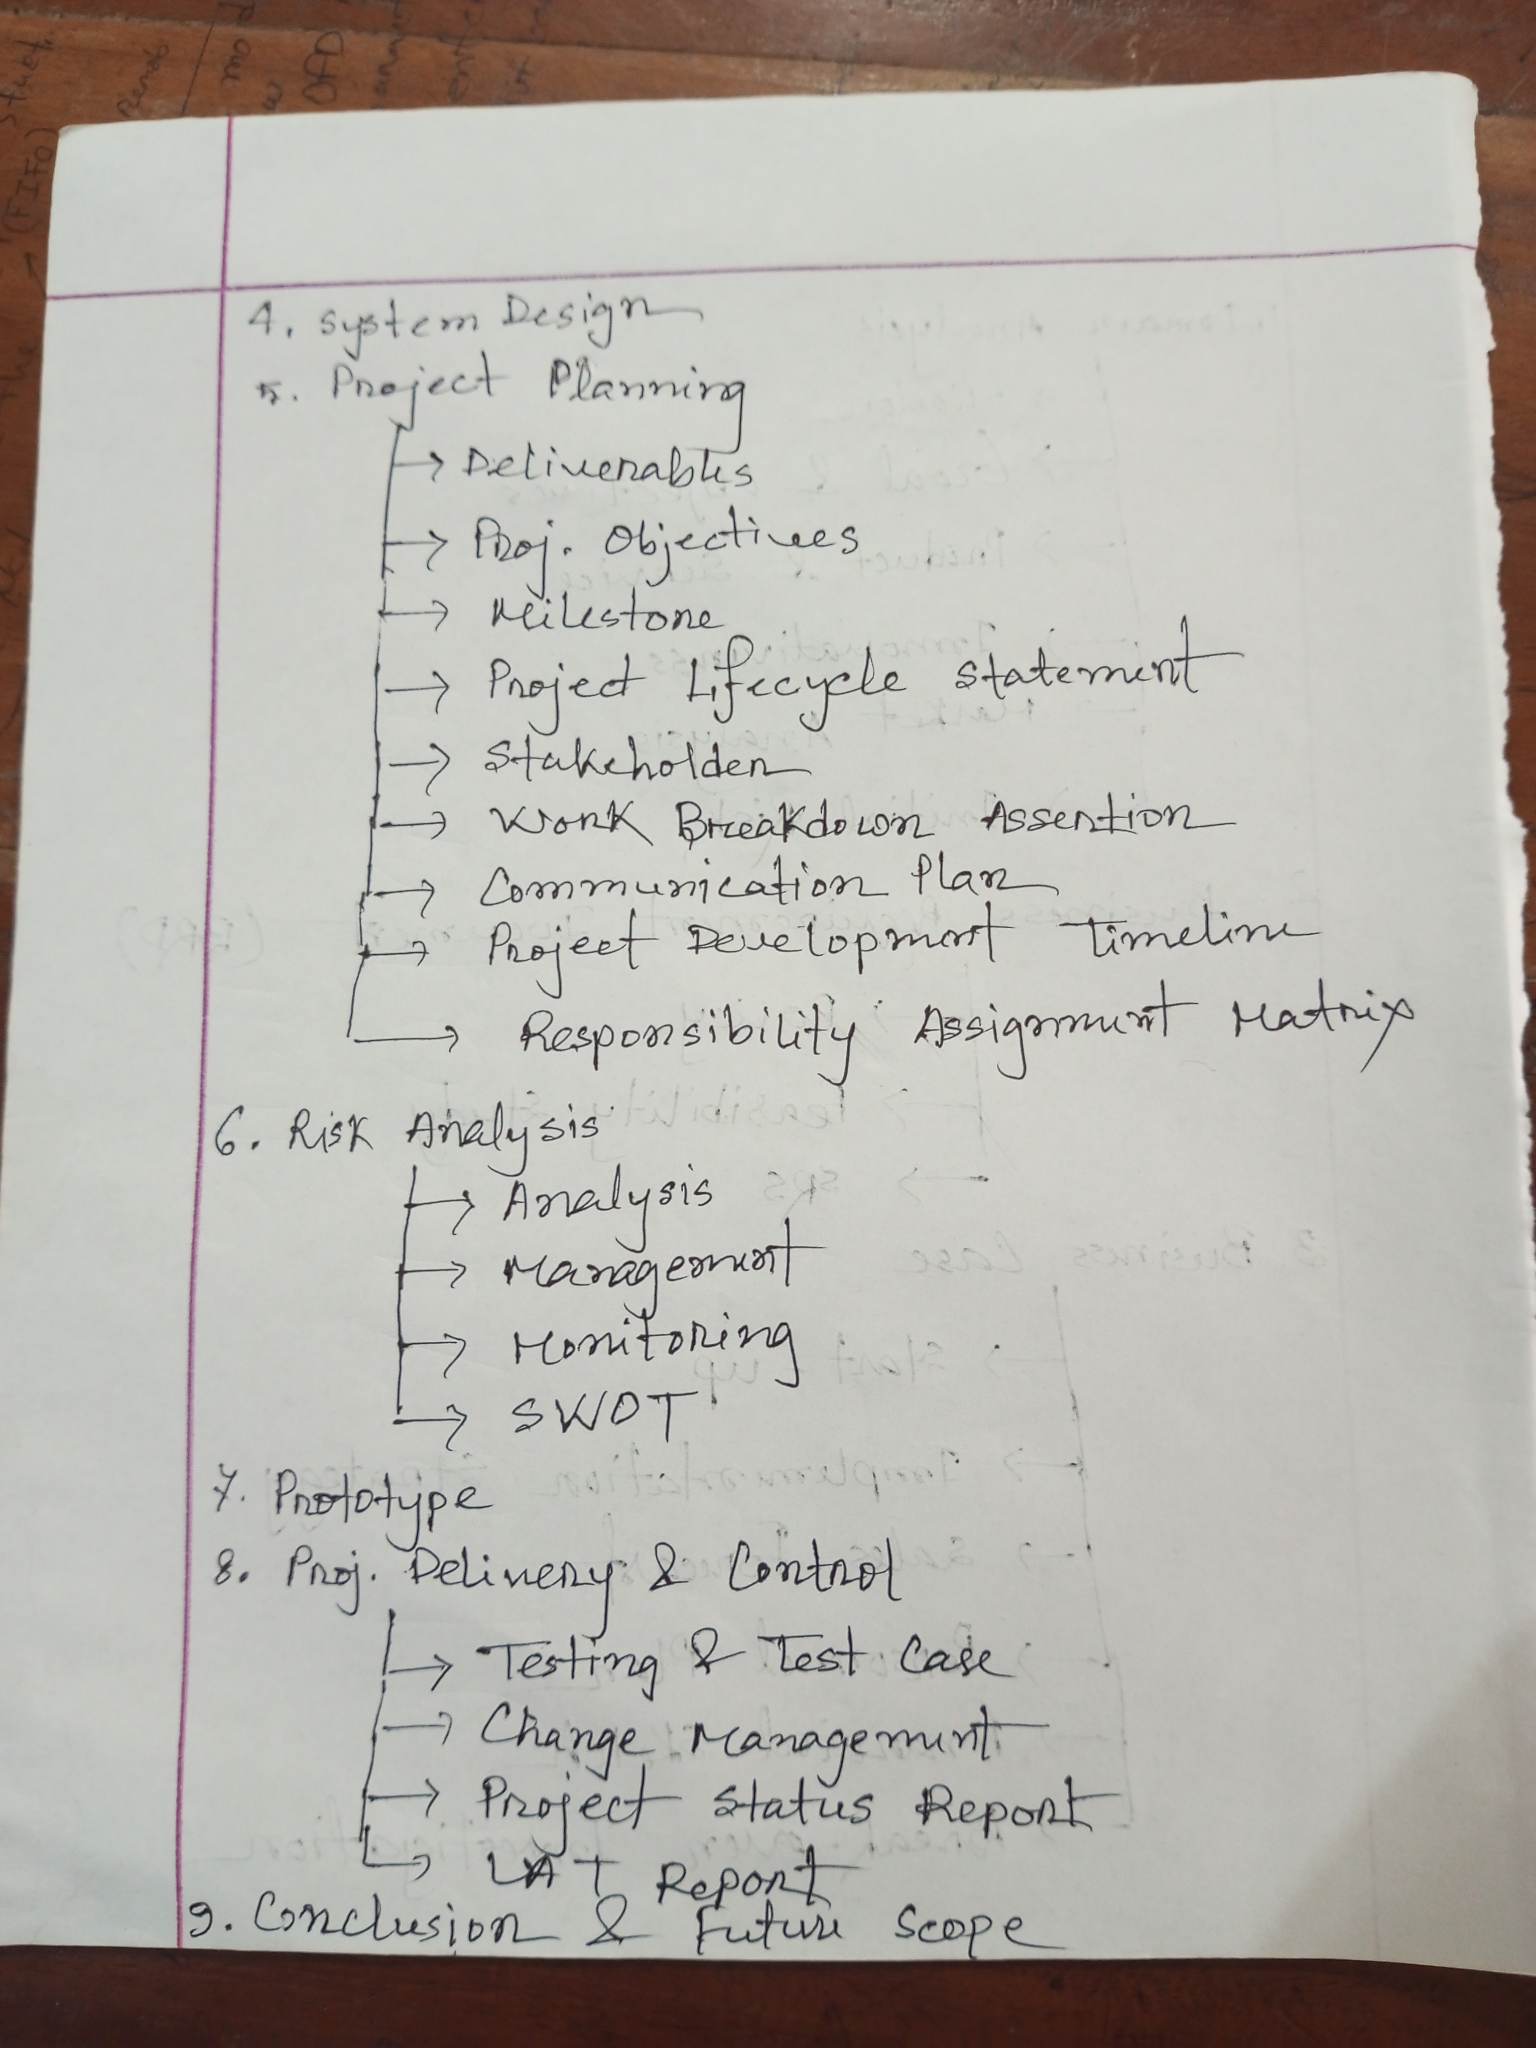 4. System Design
5. Project Planning
→ Deliverables
→ Proj. Objectives
→ Milestone
→ Project Lifecycle Statement
→ Stakeholder
→ Work Breakdown Assertion
→ Communication Plan
→ Project Development Timeline
→ Responsibility Assignment Matrix
6. Risk Analysis
→ Analysis
→ Management
→ Monitoring
→ SWOT
7. Prototype
8. Proj. Delivery & Control
→ Testing & Test Case
→ Change Management
→ Project Status Report
→ LAT Report
9. Conclusion & Future Scope